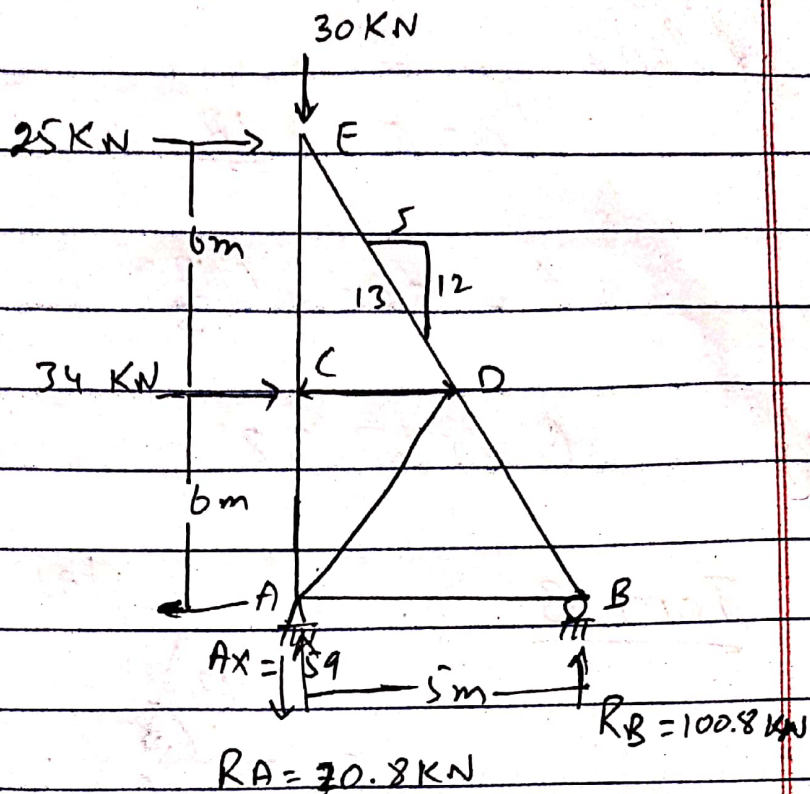 30 KN
25 KN E
6m
5
13 12
34 KN C D
6m
A B
Ax = 59
5m
RB = 100.8 KN
RA = 70.8 KN